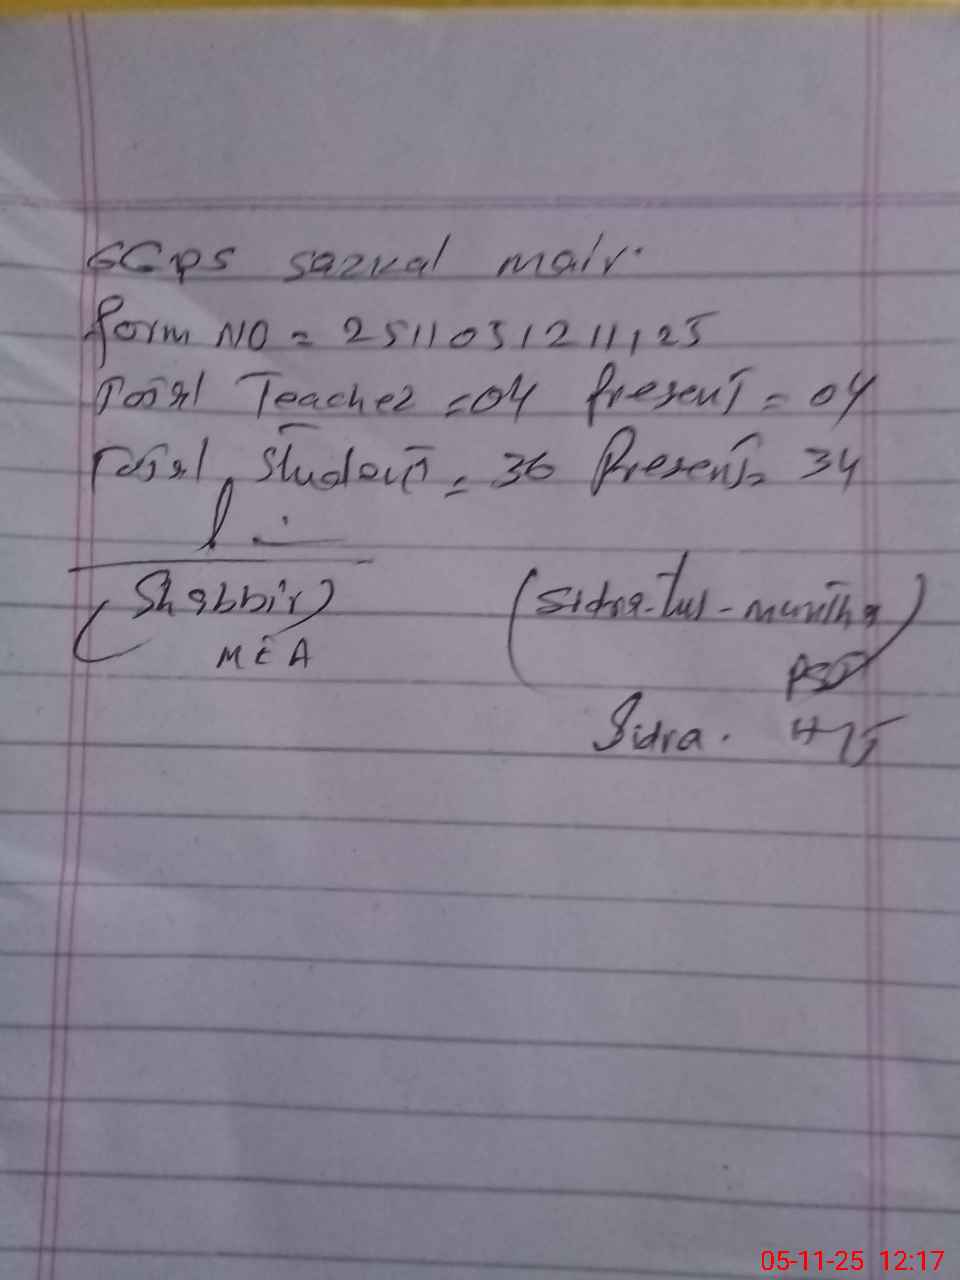 GGPS sazwal malr.
form NO = 25110512111125
Total Teacher = 04 Present = 04
Total Student = 36 Present = 34
(Shabbir) (Sidra-tul-muntha)
MEA PST
Sidra.
05-11-25 12:17